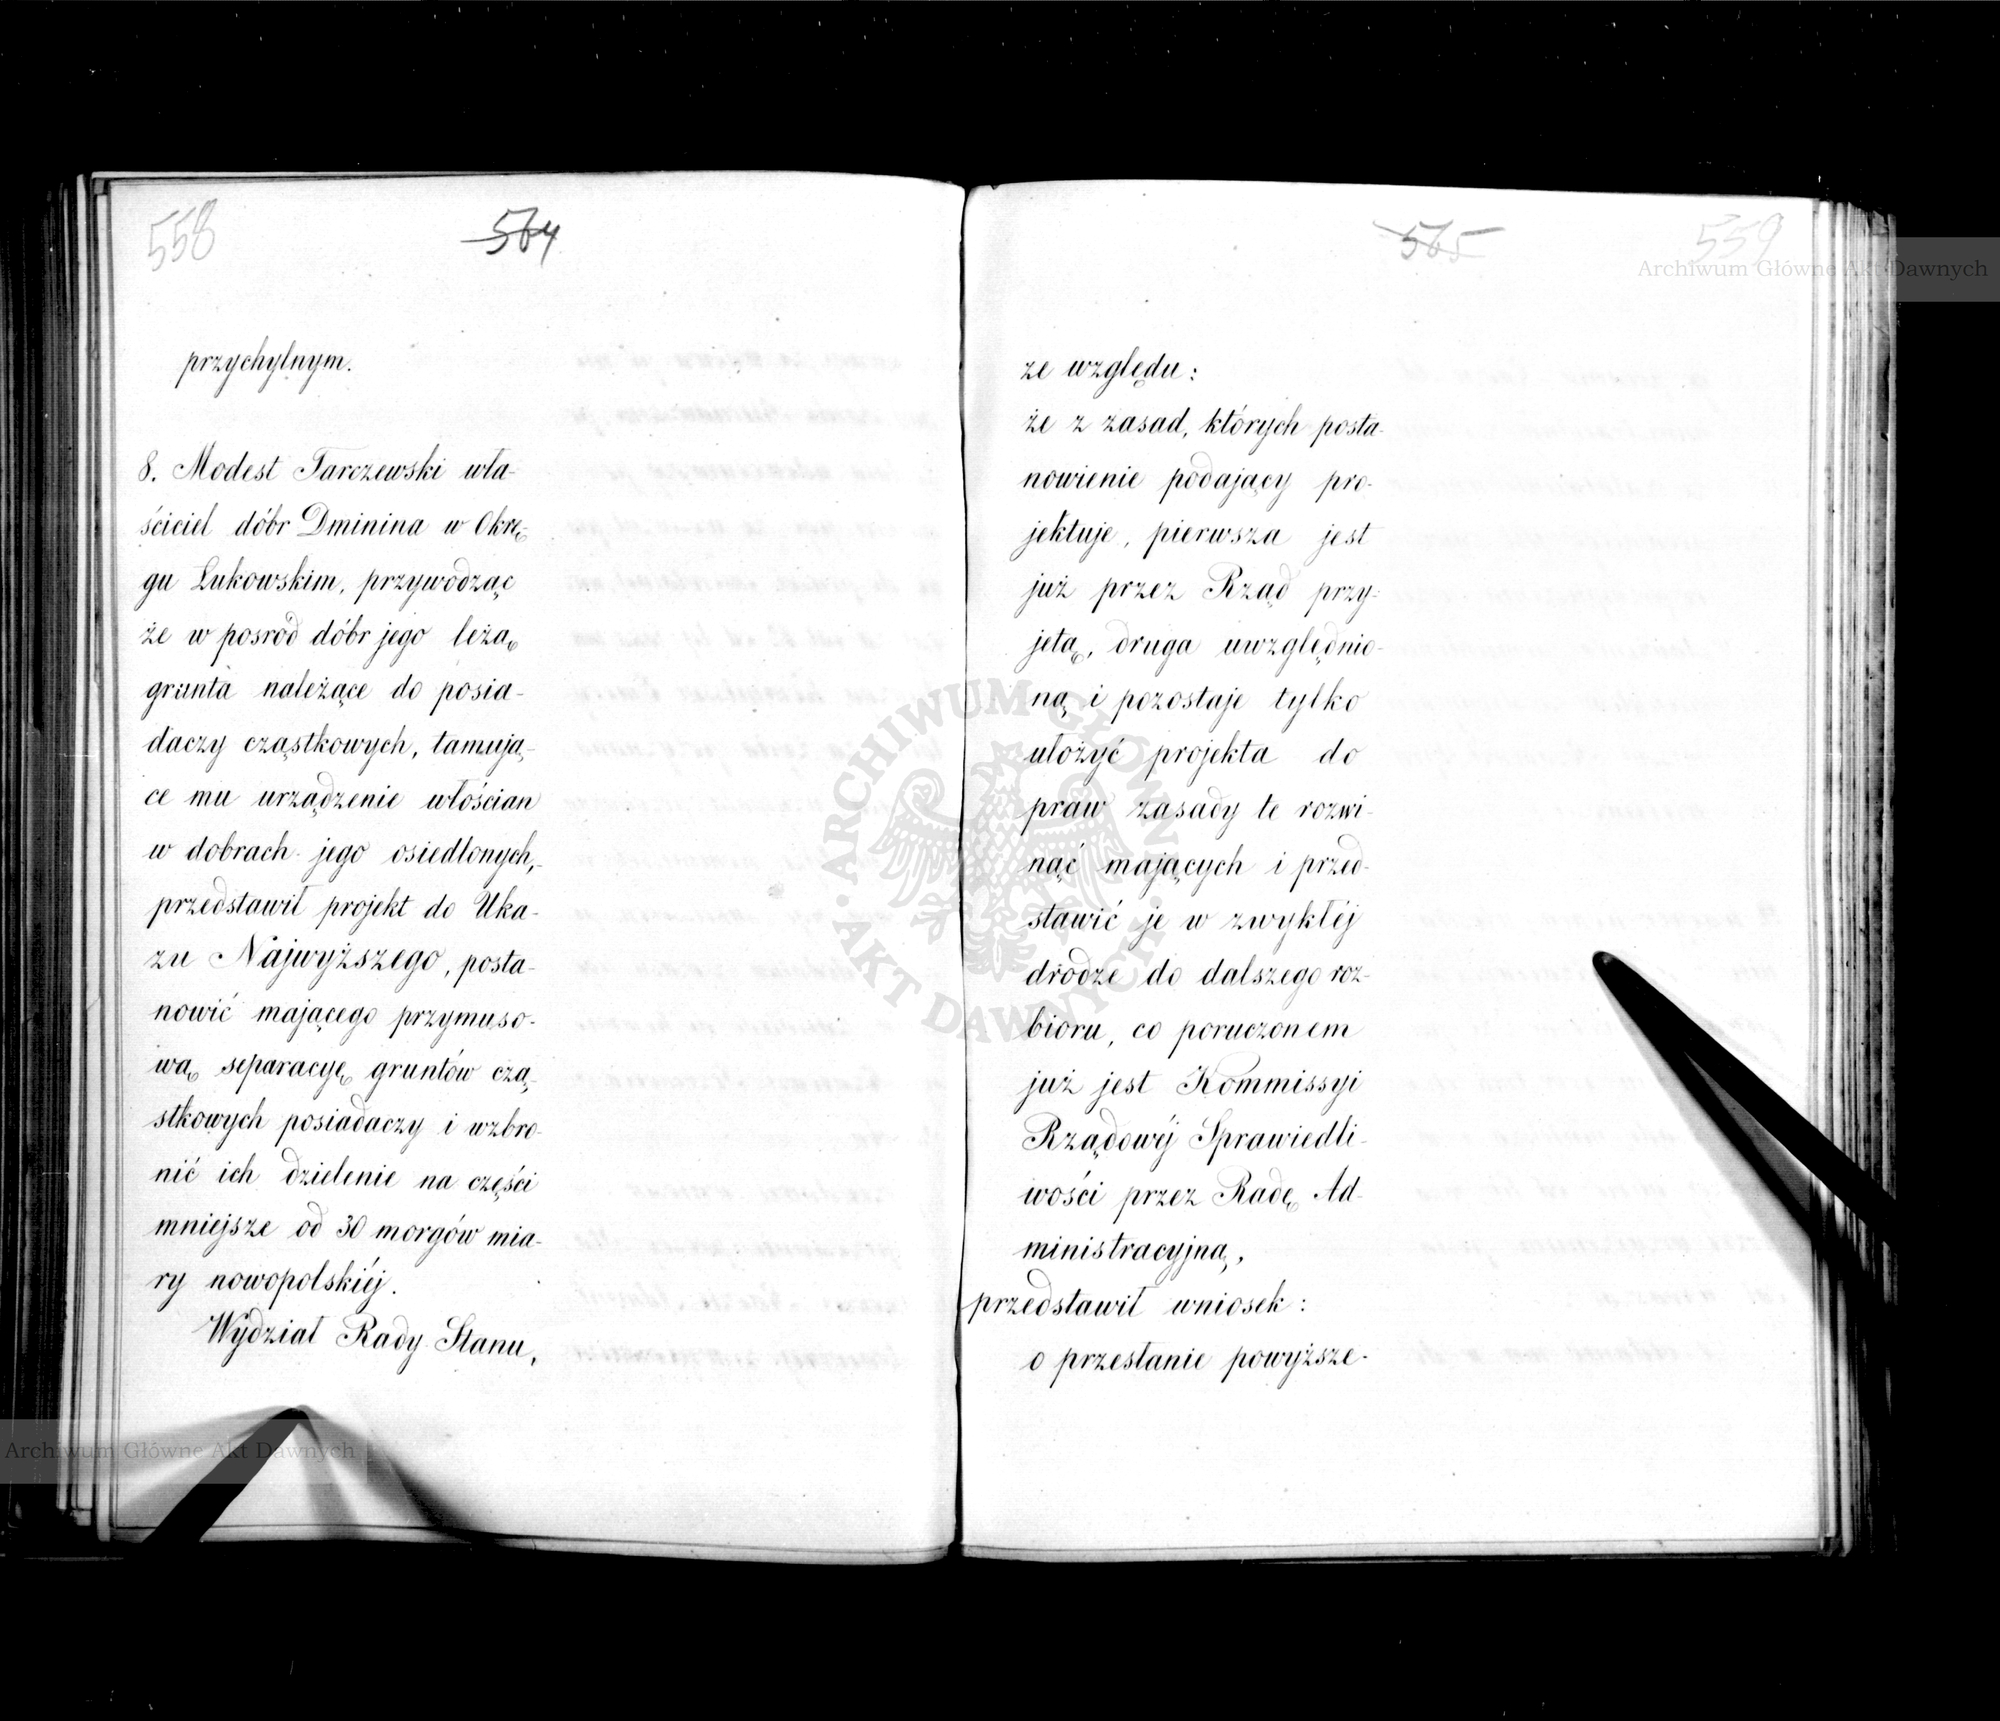 558
564
przychylnym.
8. Modest Tarczewski wła-
ściciel dóbr Dminina w Okrę
gu Łukowskim, przywodząc
że w pośród dóbr jego leżą
grunta należące do posia-
daczy cząstkowych, tamują-
ce mu urządzenie włościan
w dobrach jego osiedlonych,
przedstawił projekt do Uka-
zu Najwyższego, posta-
nowić mającego przymuso-
wą separacyę gruntów czą-
stkowych posiadaczy i wzbro-
nić ich dzielenie na części
mniejsze od 30 morgów mia-
ry nowopolskiéj.
Wydział Rady Stanu,
565
559
ze względu:
że z zasad, których posta-
nowienie podający pro-
jektuje, pierwsza jest
już przez Rząd przy-
jętą, druga uwzględnio-
ną i pozostaje tylko
ułożyć projekta do
praw zasady te rozwi-
nąć mających i przed-
stawić je w zwykłéj
drodze do dalszego roz-
bioru, co poruczonem
już jest Kommissyi
Rządowéj Sprawiedli-
wości przez Radę Ad-
ministracyjną,
przedstawił wniosek:
o przesłanie powyższe-
Archiwum Główne Akt Dawnych
ARCHIWUM GŁÓWNE AKT DAWNYCH
Archiwum Główne Akt Dawnych